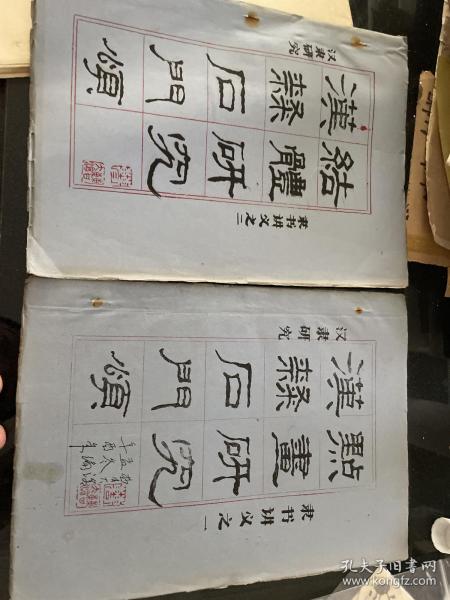 汉隶研究
漢隸石門頌
結體研究
隶书讲义之二
汉隶研究
漢隸石門頌
點畫研究
隶书讲义之一
孔夫子旧书网
www.kongfz.com